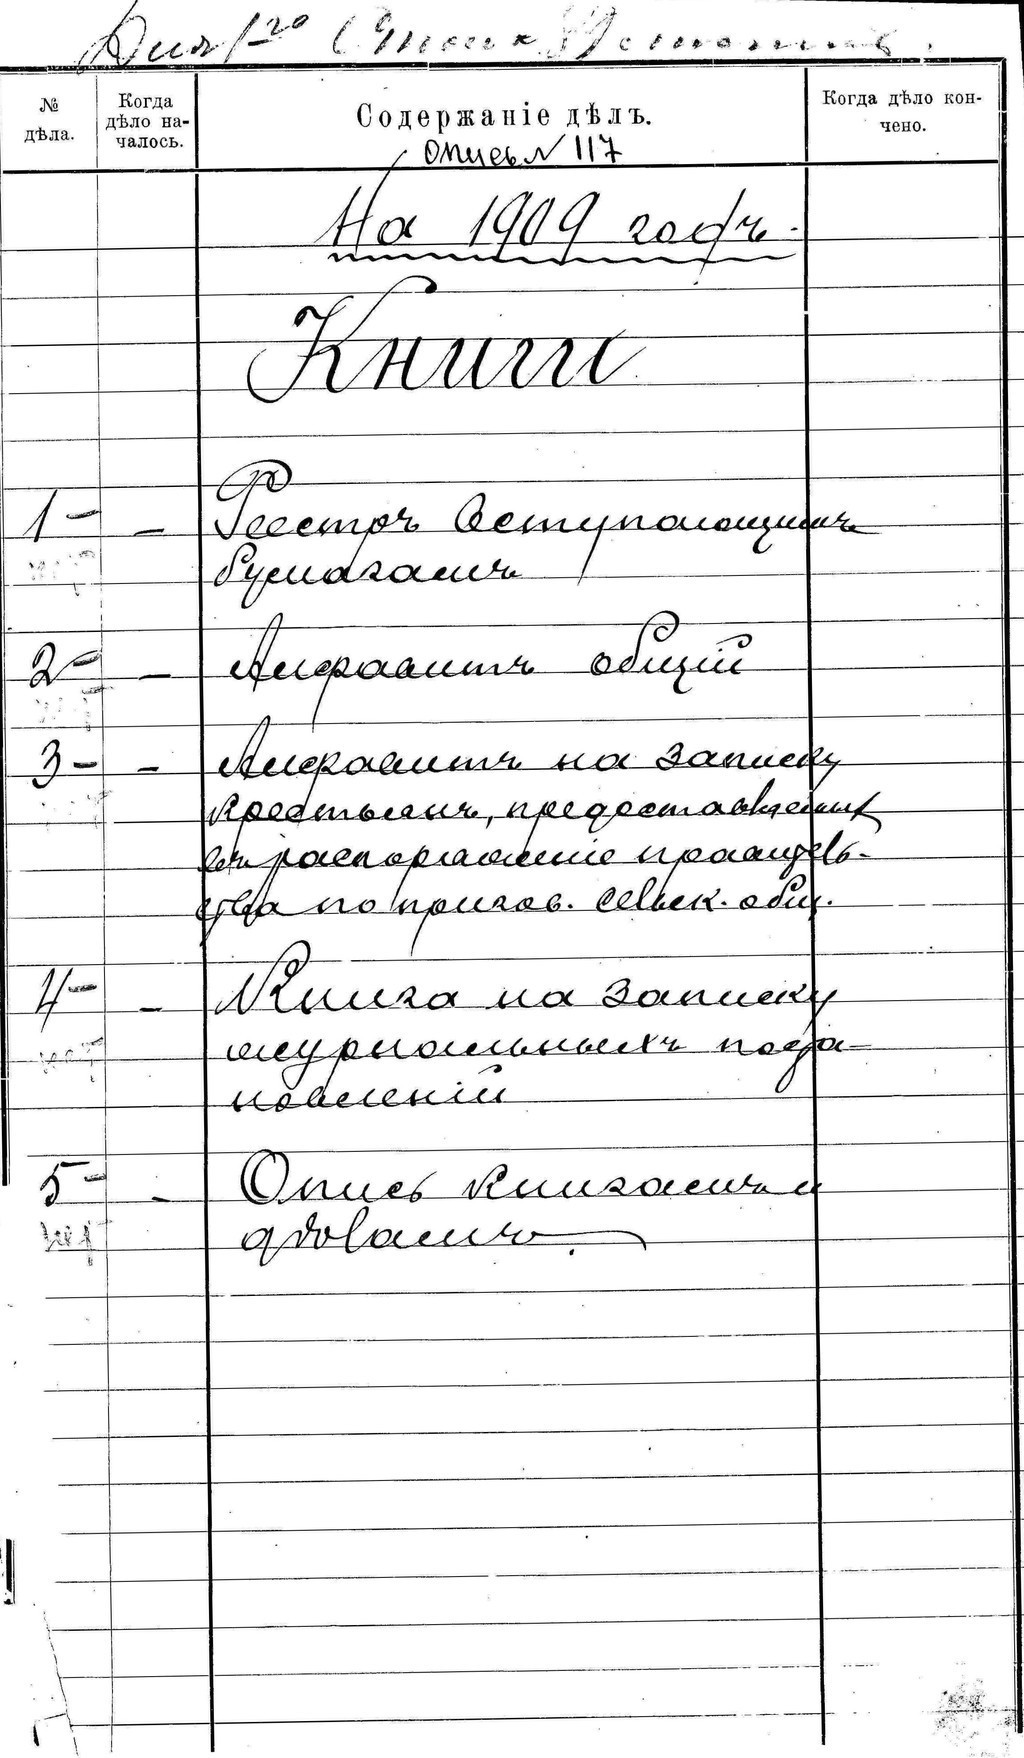 № дѣла.
Когда дѣло на-
чалось.
Содержаніе дѣлъ.
Когда дѣло кон-
чено.
Опись N 117
На 1909 годъ.
Книги
1 - - Реестръ вступающимъ
бумагамъ
2 - - Алфавитъ общій
3 - - Алфавитъ на записку
крестьянъ, предоставленных
въ распоряженіе правитель-
ства по пригов. сельск. общ.
4 - - Книга на записку
журнальныхъ поста-
новленій
5 - - Опись книгамъ и
дѣламъ.